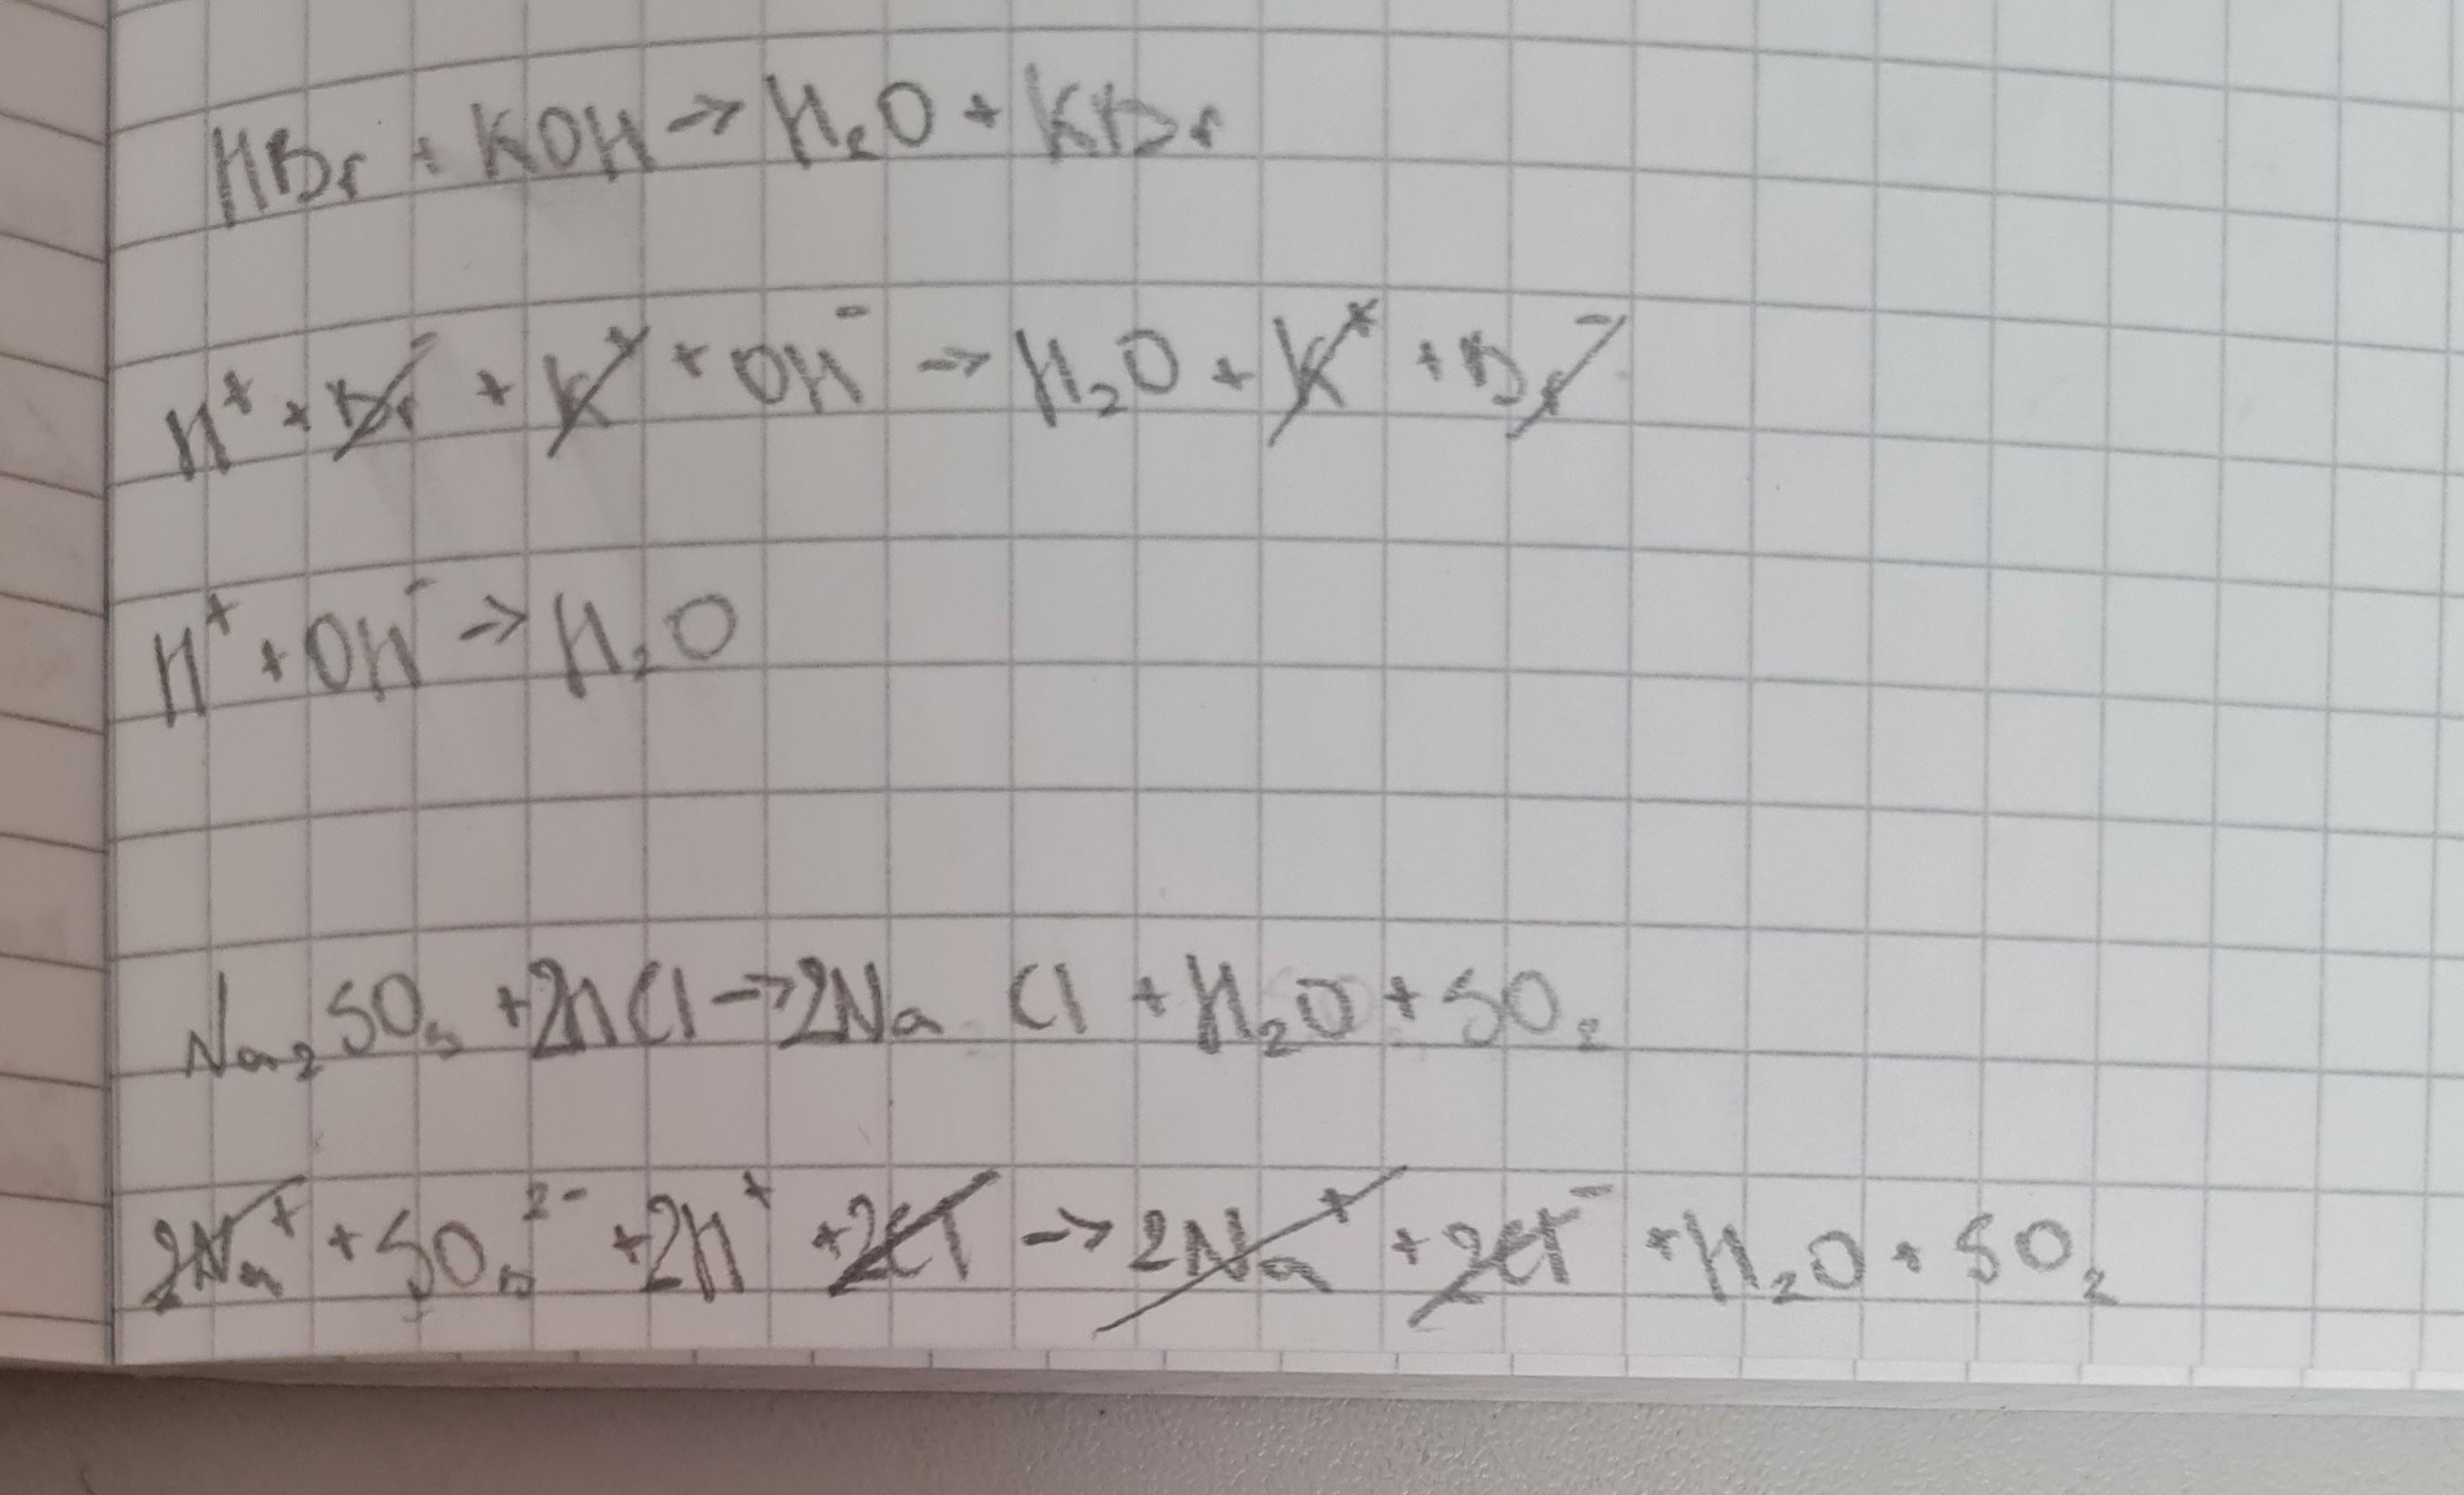 HBr + KOH → H₂O + KBr
H⁺ + Br⁻ + K⁺ + OH⁻ → H₂O + K⁺ + Br⁻
H⁺ + OH⁻ → H₂O
Na₂SO₃ + 2HCl → 2NaCl + H₂O + SO₂
2Na⁺ + SO₃²⁻ + 2H⁺ + 2Cl⁻ → 2Na⁺ + 2Cl⁻ + H₂O + SO₂